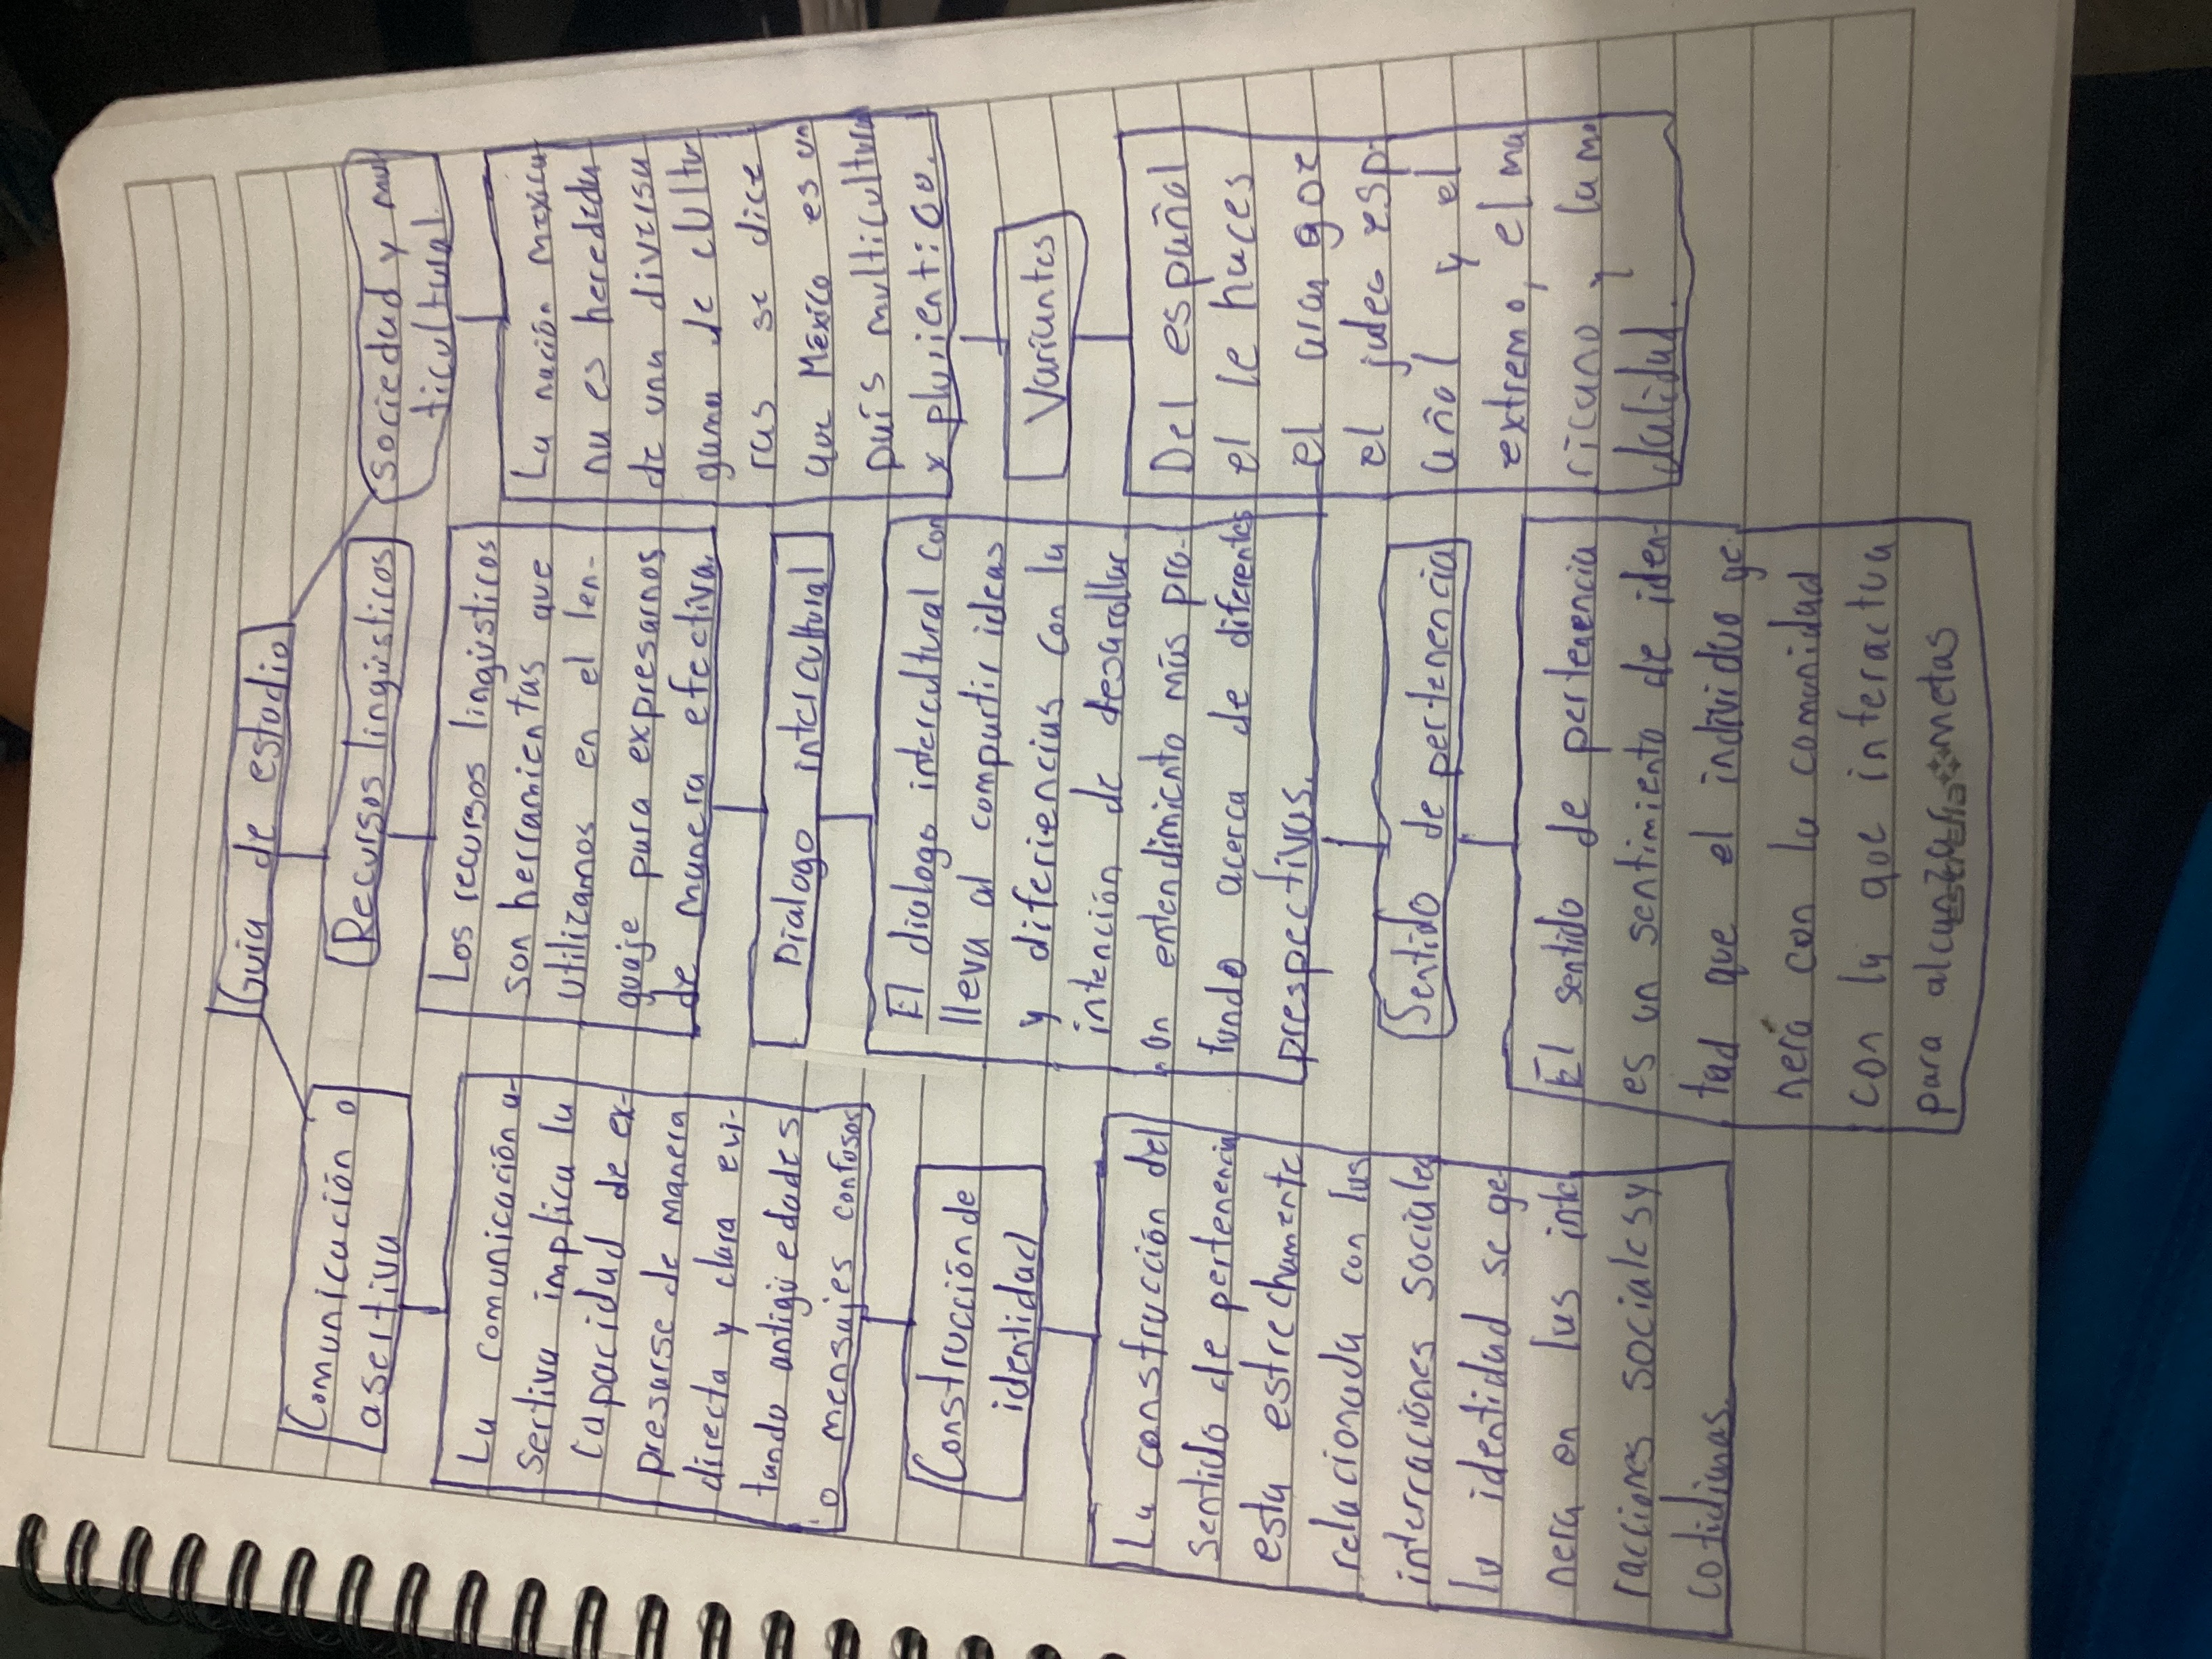 Guia de estudio
Comunicación o
asertiva
La comunicación a-
sertiva implica la
capacidad de ex-
presarse de manera
directa y clara evi-
tando antigüedades
o mensajes confusos
Construcción de
identidad
La construcción del
sentido de pertenencia
esta estrechamente
relacionada con las
interraciónes sociales
la identidad se ge
nera en las inte
racciones sociales y
cotidianas.
Recursos lingüisticos
Los recursos lingüisticos
son herramientas que
utilizamos en el len-
guaje para expresarnos
de manera efectiva.
Dialogo intercultural
El dialogo intercultural con
lleva al compartir ideas
y diferiencias con la
intención de desarollar
un entendimiento más pro-
fundo acerca de diferentes
prespectivas.
Sentido de pertenencia
El sentido de pertenencia
es un sentimiento de iden-
tad que el individuo ge
nera con la comunidad
con la que interactua
para metas
sociedad y mul
ticultural.
La nación mexica
na es heredada
de una diversa
gama de cultu
ras se dice
que México es un
país multicultural
x plurientico.
Variantes
Del español
el le huces
el aran goze
el judeo esp-
añol y el
extremo, el ma
ricano, y la mo
dalidad.